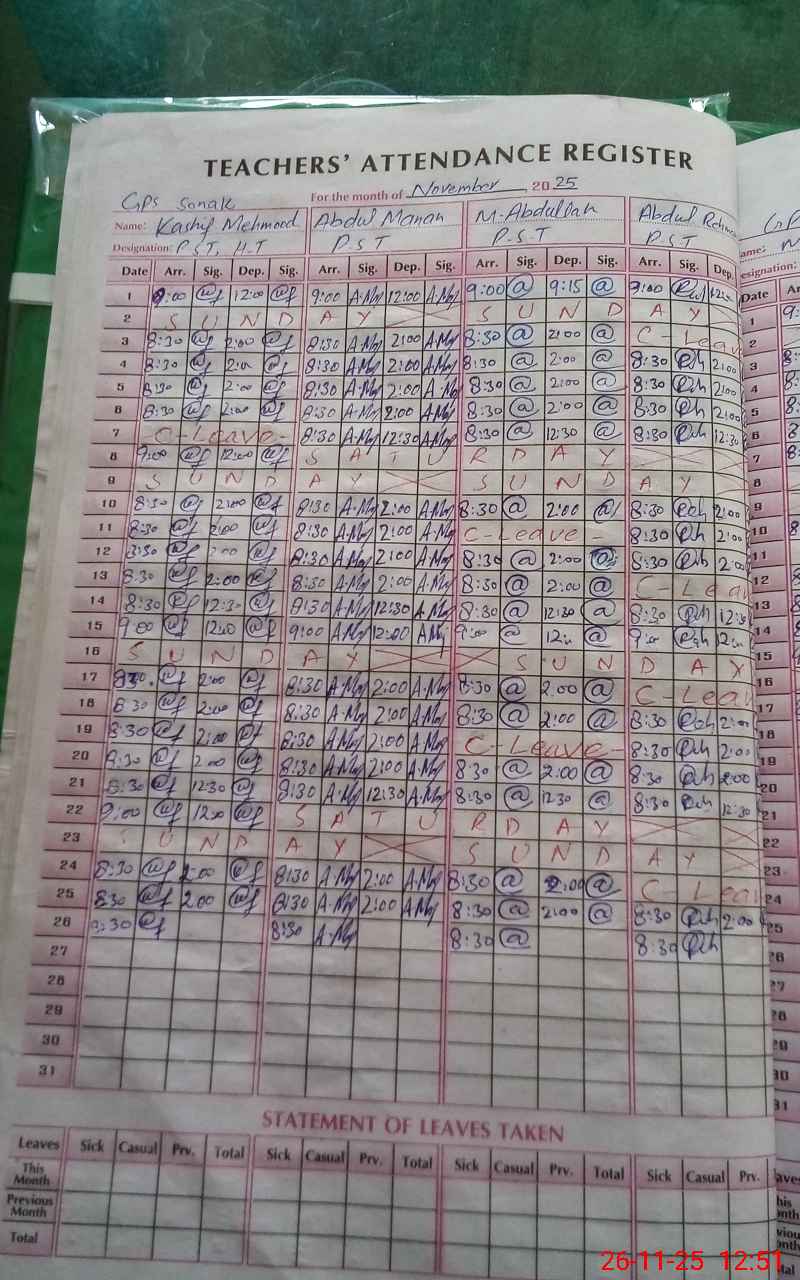 TEACHERS' ATTENDANCE REGISTER
GPS Sonak For the month of November 2025
Name: Kashif Mehmood Abdul Manan M-Abdullah Abdul
Designation: P.S.T, H.T P.S.T P.S.T P.S.T
Date Arr. Sig. Dep. Sig. Arr. Sig. Dep. Sig. Arr. Sig. Dep. Sig. Arr. Sig. Dep.
1 9:00 12:00 9:00 A.My 12:00 A.My 9:00 @ 9:15 @ 9:00
2 S U N D A Y S U N D A Y
3 8:30 2:00 8:30 A.My 2:00 A.My 8:30 @ 2:00 @ C-Leav
4 8:30 2:00 8:30 A.My 2:00 A.My 8:30 @ 2:00 @ 8:30 2:00
5 8:30 2:00 8:30 A.My 2:00 A.My 8:30 @ 2:00 @ 8:30 2:00
6 8:30 2:00 8:30 A.My 2:00 A.My 8:30 @ 2:00 @ 8:30 2:00
7 -C-Leave- 8:30 A.My 12:30 A.My 8:30 @ 12:30 @ 8:30 12:30
8 9:00 12:00 S A T U R D A Y
9 S U N D A Y S U N D A Y
10 8:30 2:00 8:30 A.My 2:00 A.My 8:30 @ 2:00 @ 8:30 2:00
11 8:30 2:00 8:30 A.My 2:00 A.My C-Leave- 8:30 2:00
12 8:30 2:00 8:30 A.My 2:00 A.My 8:30 @ 2:00 @ 8:30 2:00
13 8:30 2:00 8:30 A.My 2:00 A.My 8:30 @ 2:00 @ C-Leav
14 8:30 12:30 8:30 A.My 12:30 A.My 8:30 @ 12:30 @ 8:30
15 9:00 12:00 9:00 A.My 12:00 A.My 9:00 @ @
16 S U N D A Y S U N D A Y
17 8:30 2:00 8:30 A.My 2:00 A.My 8:30 @ 2:00 @ C-Leav
18 8:30 2:00 8:30 A.My 2:00 A.My 8:30 @ 2:00 @ 8:30 2:00
19 8:30 2:00 8:30 A.My 2:00 A.My C-Leave- 8:30 2:00
20 8:30 2:00 8:30 A.My 2:00 A.My 8:30 @ 2:00 @ 8:30 2:00
21 8:30 12:30 8:30 A.My 12:30 A.My 8:30 @ 12:30 @ 8:30 12:30
22 9:00 12:00 S A T U R D A Y
23 S U N D A Y S U N D A Y
24 8:30 2:00 8:30 A.My 2:00 A.My 8:30 @ 2:00 @ C-Leav
25 8:30 2:00 8:30 A.My 2:00 A.My 8:30 @ 2:00 @ 8:30 2:00
26 8:30 8:30 A.My 8:30 @ 8:30
27
28
29
30
31
STATEMENT OF LEAVES TAKEN
Leaves Sick Casual Prv. Total Sick Casual Prv. Total Sick Casual Prv. Total Sick Casual Prv.
This Month
Previous Month
Total
26-11-25 12:51